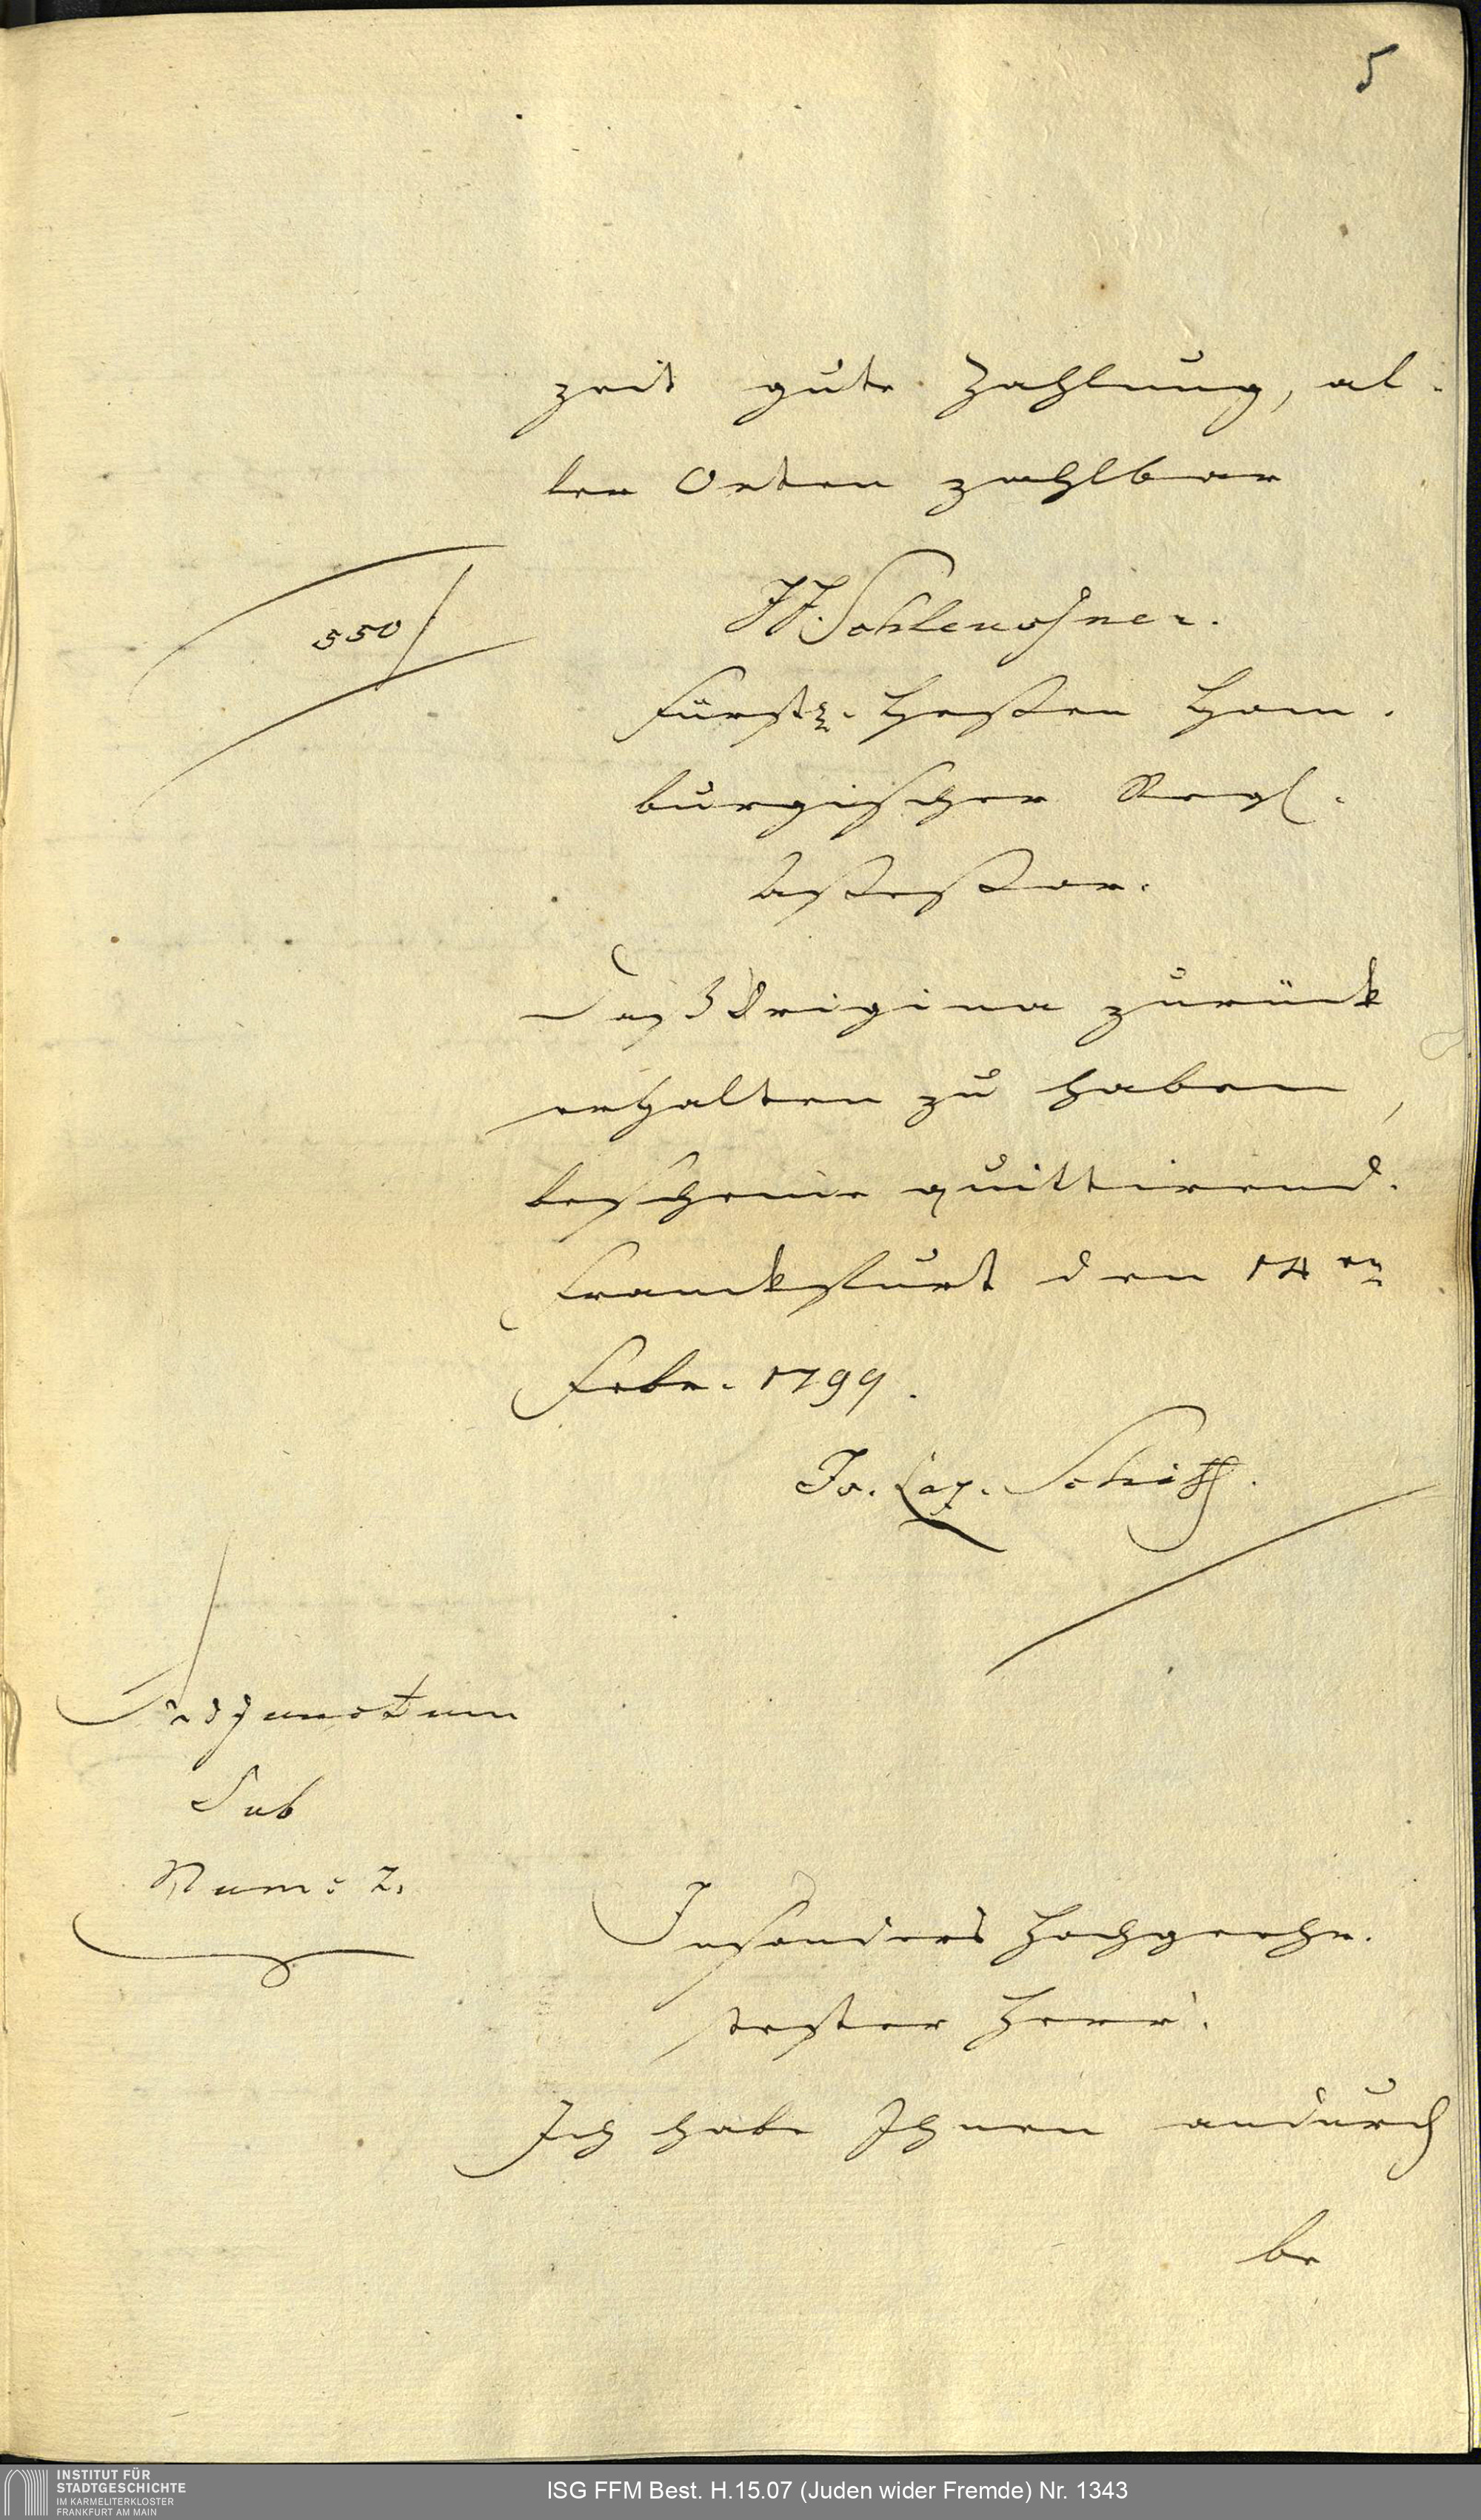 5
zeit gute Zahlung, al-
ler Orten zahlbar
550/
J J. Schleusner.
Fürstl. Heßen Hom-
burgischer Regs.
Assessor.
Das Origina zurück
erhalten zu haben,
bescheine quittirend.
Franckfurt den 14 en
Febr. 1799.
Jo. Laz. Schiff.
Adjunctum
Sub
Num: 2.
Insonders Hochgeehr-
tester Herr.
Ich habe Ihnen andurch
be
INSTITUT FÜR
STADTGESCHICHTE
IM KARMELITERKLOSTER
FRANKFURT AM MAIN
ISG FFM Best. H.15.07 (Juden wider Fremde) Nr. 1343